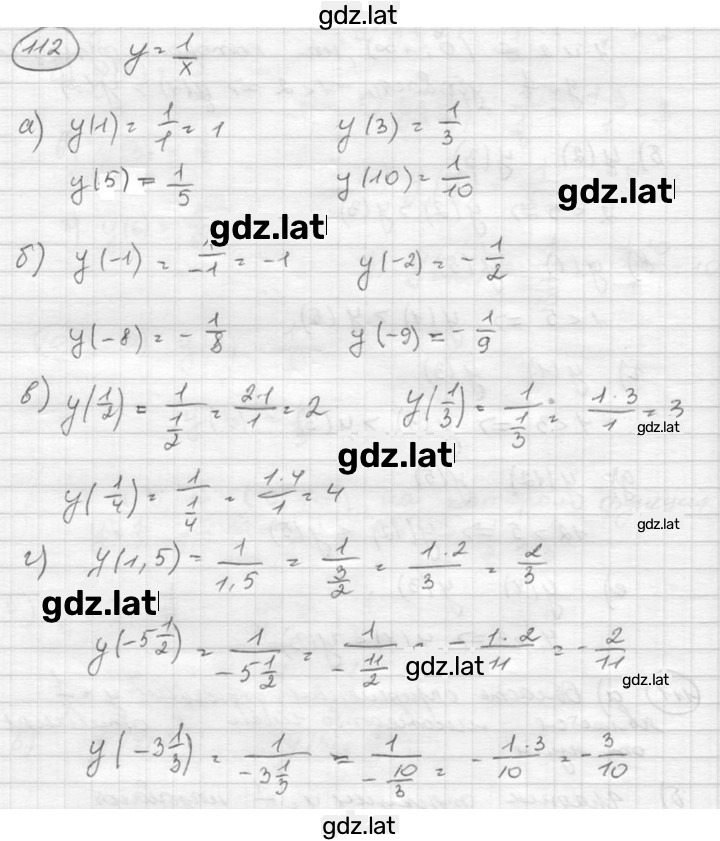 gdz.lat
112 y = 1/x
а) y(1) = 1/1 = 1 y(3) = 1/3
y(5) = 1/5 y(10) = 1/10
gdz.lat
gdz.lat
б) y(-1) = 1/-1 = -1 y(-2) = -1/2
y(-8) = -1/8 y(-9) = -1/9
в) y(1/2) = 1/(1/2) = 2·1/1 = 2 y(1/3) = 1/(1/3) = 1·3/1 = 3
gdz.lat
gdz.lat
y(1/4) = 1/(1/4) = 1·4/1 = 4
gdz.lat
г) y(1,5) = 1/1,5 = 1/(3/2) = 1·2/3 = 2/3
gdz.lat
y(-5 1/2) = 1/(-5 1/2) = 1/(-11/2) = -1·2/11 = -2/11
gdz.lat
gdz.lat
y(-3 1/3) = 1/(-3 1/3) = 1/(-10/3) = -1·3/10 = -3/10
gdz.lat